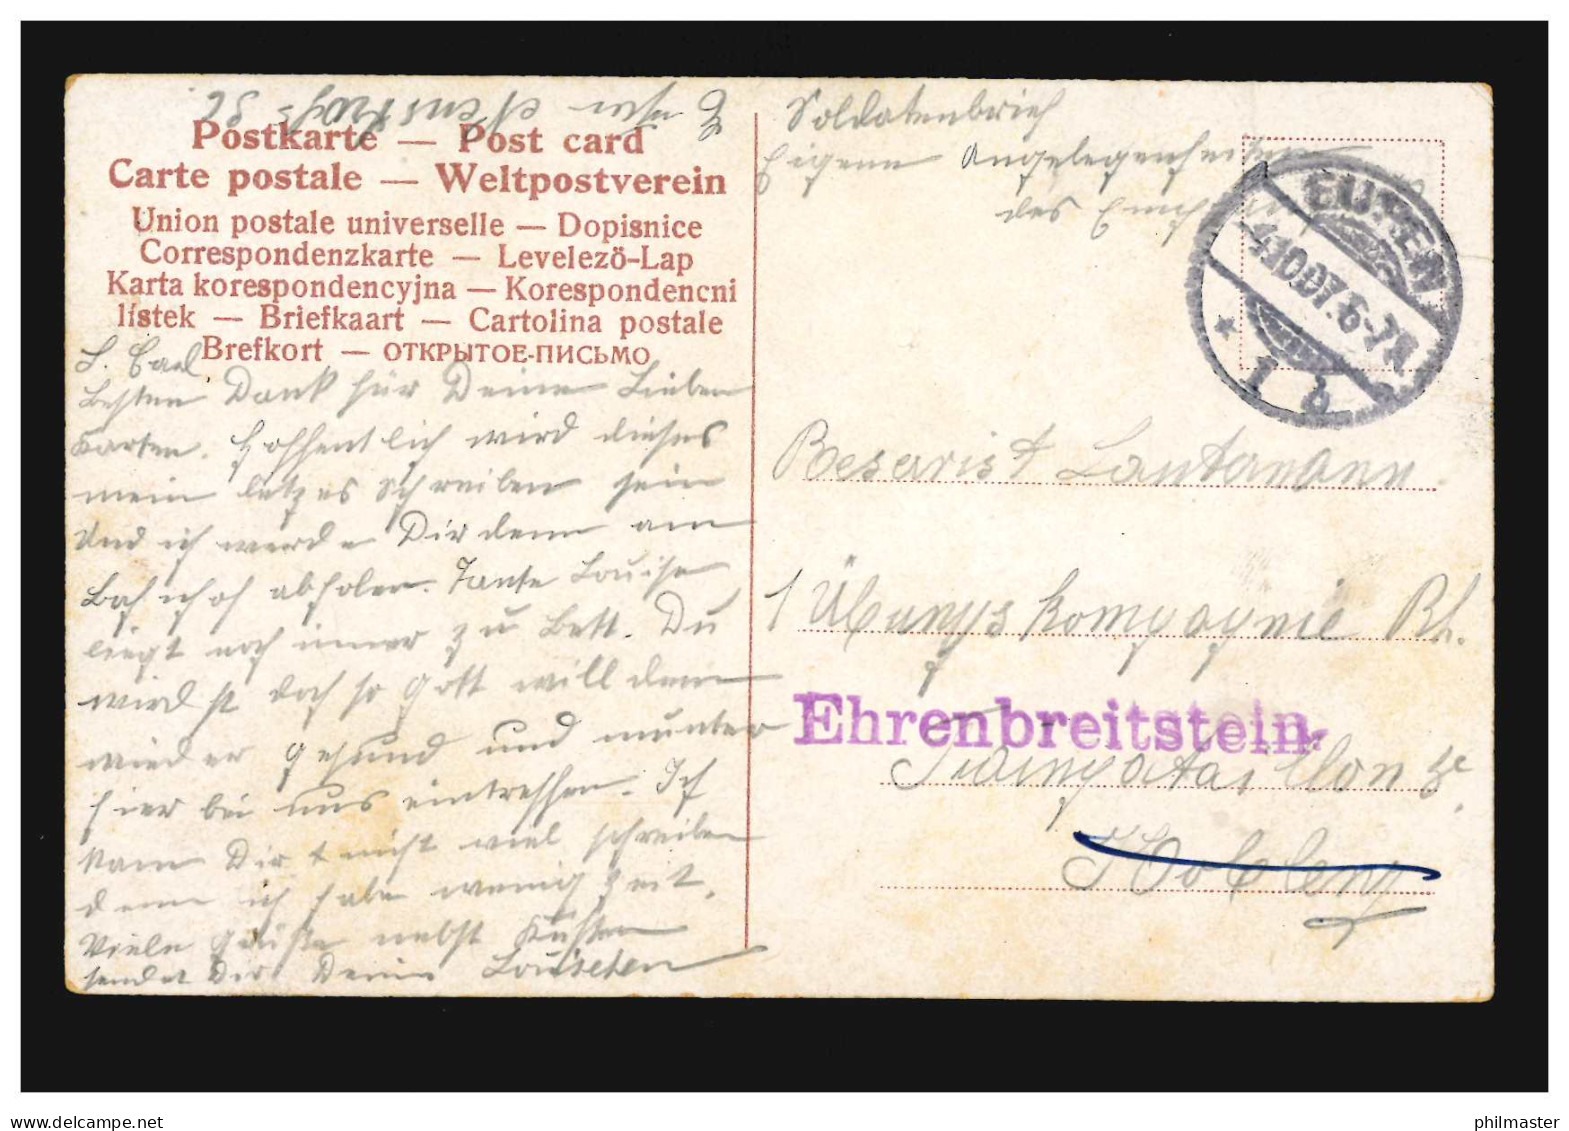 Postkarte — Post card
Carte postale — Weltpostverein
Union postale universelle — Dopisnice
Correspondenzkarte — Levelezö-Lap
Karta korespondencyjna — Korespondencni
lístek — Briefkaart — Cartolina postale
Brefkort — ОТКРЫТОЕ-ПИСЬМО
L. Carl
Besten Dank für Deine Lieben
Karten. Hoffentlich wird dieses
mein letzes Schreiben sein
Und ich werde Dir denn am
Bahnhof abholen. Tante Louise
liegt noch immer zu Bett. Du
wirdst doch so Gott will dann
wieder gesund und munter
hier bei uns eintreffen. Ich
kann Dir nicht viel schreiben
denn ich habe wenig Zeit.
Viele Grüße nebst Küssen
sendet Dir Deine Louischen
Soldatenbrief
Eigene Angelegenheiten
des Empfängers
EUPEN
4.10.07.6-7N
* 1 b
Reservist Lautermann
1 Übungs Kompagnie Rh.
Ehrenbreitstein
Trainbataillon 8.
Koblenz
philmaster.com
philmaster